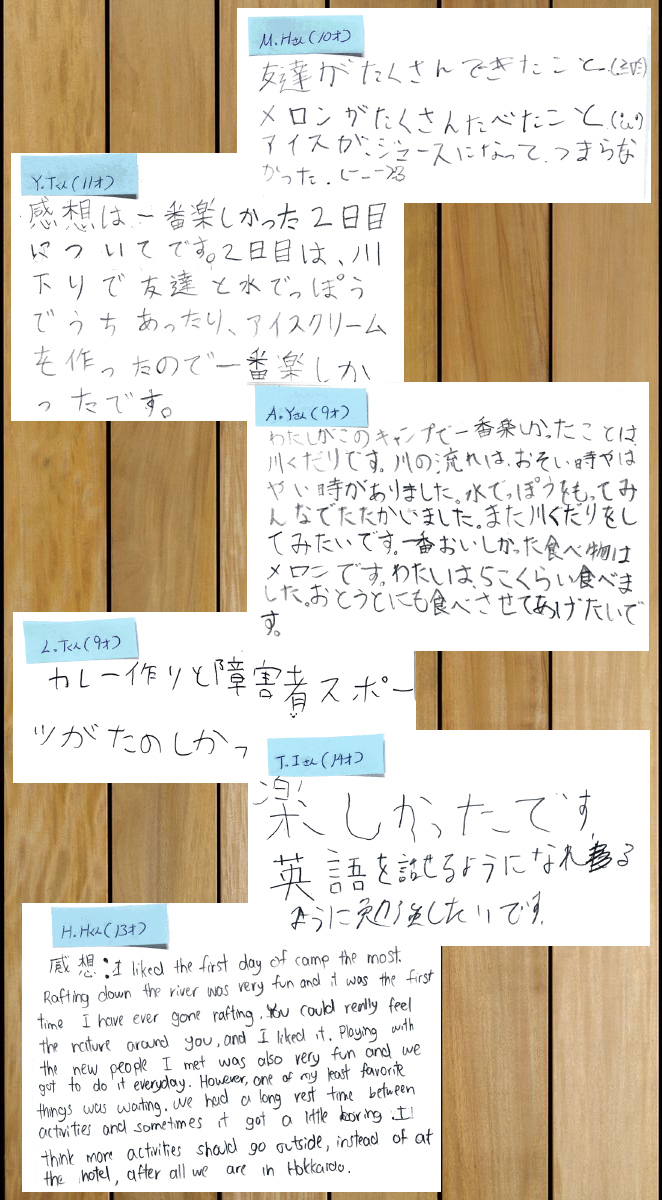 M.Hさん(10才)
友達がたくさんできたこと
メロンがたくさんたべたこと
アイスが、ジュースになって、つまらな
かった.
Y.Tくん(11才)
感想は一番楽しかった2日目
についてです。2日目は、川
下りで友達と水でっぽう
でうちあったり、アイスクリーム
を作ったので一番楽しか
ったです。
A.Yさん(9才)
わたしがこのキャンプで一番楽しかったことは、
川くだりです。川の流れは、おそい時やは
やい時がありました。水でっぽうをもってみ
んなでたたかいました。また川くだりをし
てみたいです。一番おいしかった食べ物は
メロンです。わたしは、5こくらい食べま
した。おとうとにも食べさせてあげたいで
す。
L.Tくん(9才)
カレー作りと障害者スポー
ツがたのしかっ
T.Iさん(14才)
楽しかったです.
英語を話せるようになれる
ように勉強したいです.
H.Hくん(13才)
感想:I liked the first day of camp the most.
Rafting down the river was very fun and it was the first
time I have ever gone rafting. You could really feel
the nature around you, and I liked it. Playing with
the new people I met was also very fun and we
got to do it everyday. However, one of my least favorite
things was waiting. We had a long rest time between
activities and sometimes it got a little boring. I
think more activities should go outside, instead of at
the hotel, after all we are in Hokkaido.